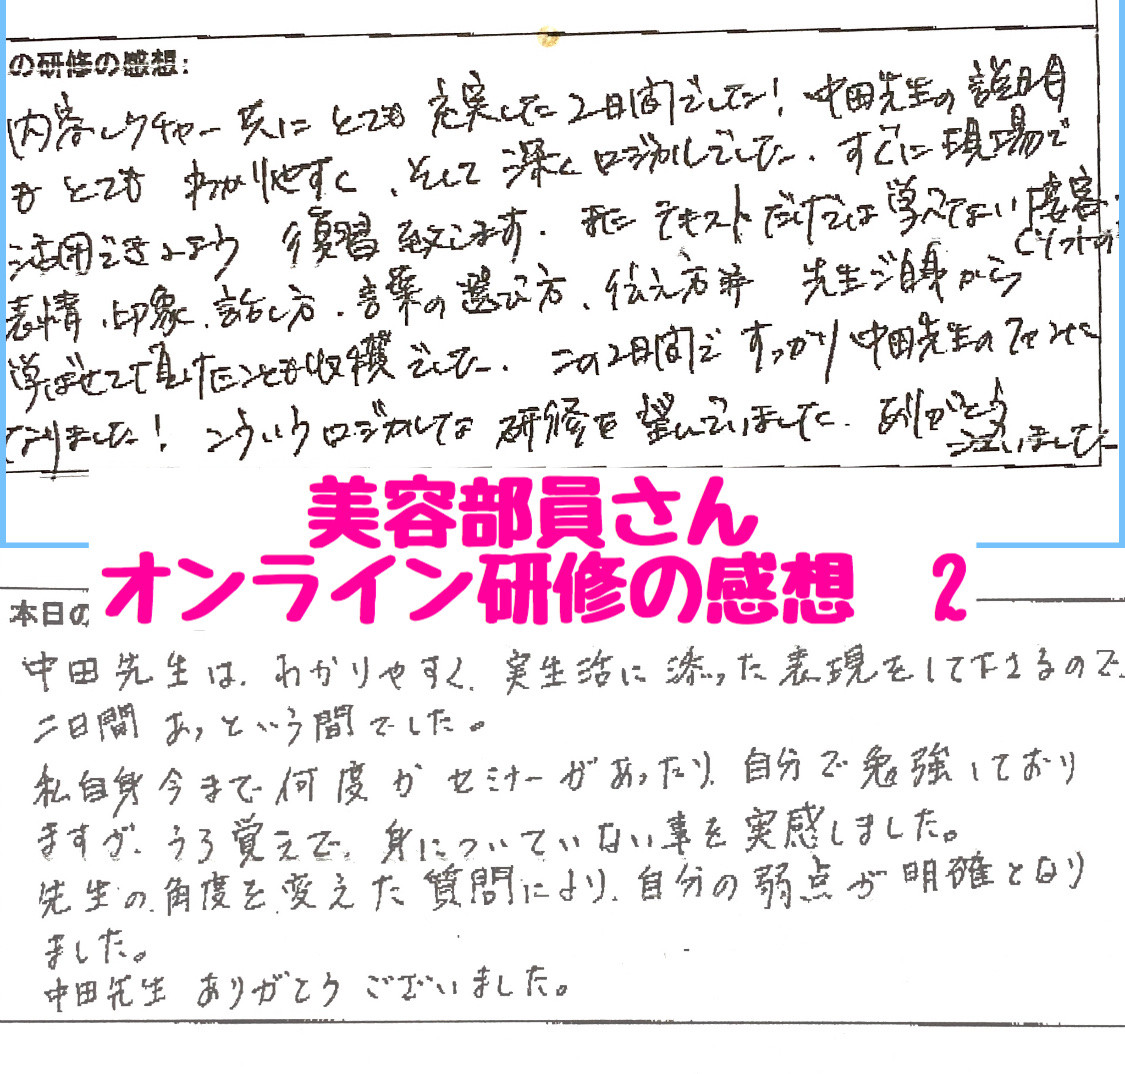 の研修の感想:
内容レクチャー共にとても充実した2日間でした! 中田先生の説明
もとてもわかりやすく、そして深くロジカルでした。すぐに現場で
活用できるよう復習致します。またテキストだけでは学べない「接客
(ソフトの
表情、印象、話し方、言葉の選び方、伝え方等 先生ご自身から
学ばせて頂けたことも収穫でした。この2日間ですっかり中田先生のファンに
なりました! こういうロジカルな研修を望んでいました。ありがとう
ございました
美容部員さん
オンライン研修の感想 2
本日の
中田先生は、わかりやすく、実生活に添った表現をして下さるので、
二日間あっという間でした。
私自身今まで何度かセミナーがあったり、自分で勉強しており
ますが、うろ覚えで、身についていない事を実感しました。
先生の角度を変えた質問により、自分の弱点が明確となり
ました。
中田先生 ありがとうございました。